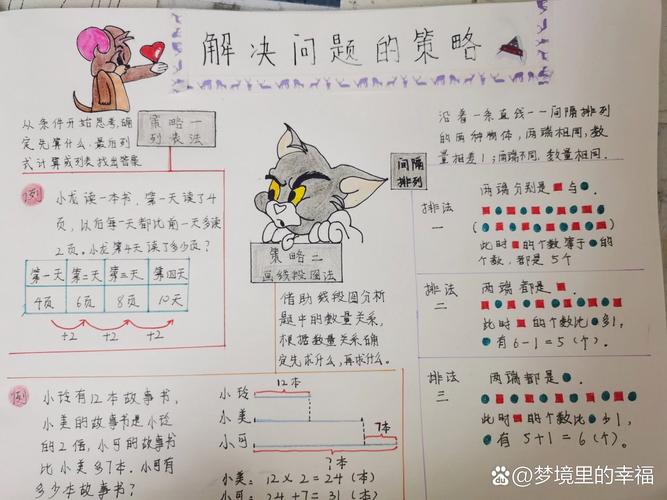 解决问题的策略
从条件开始思考,确
定先算什么,最后列
式计算或列表找出答案
策略一
列表法
例
小龙读一本书,第一天读了4
页,以后每一天都比前一天多读
2页。小龙第4天读了多少页?
第一天 第二天 第三天 第四天
4页 6页 8页 10天
+2 +2 +2
策略二
画线段图法
借助线段图分析
题中的数量关系,
根据数量关系确
定先求什么,再求什么。
间隔
排列
沿着一条直线一一间隔排列
的两种物体,两端相同,数
量相差1;两端不同,数量相同。
排法
一
两端分别是■与●。
(
)
此时■的个数等于●的
个数,都是5个
排法
二
两端都是■。
此时■的个数比●多1,
●有6-1=5(个)。
排法
三
两端都是●。
此时■的个数比●少1,
●有5+1=6(个)。
例
小玲有12本故事书,
小美的故事书是小玲
的2倍,小可的故事书
比小美多7本。小可有
多少本故事书?
12本
小玲
小美
7本
小可
?本
小美:12×2=24(本)
小可:24+7=31(本)
Bai百度 @梦境里的幸福